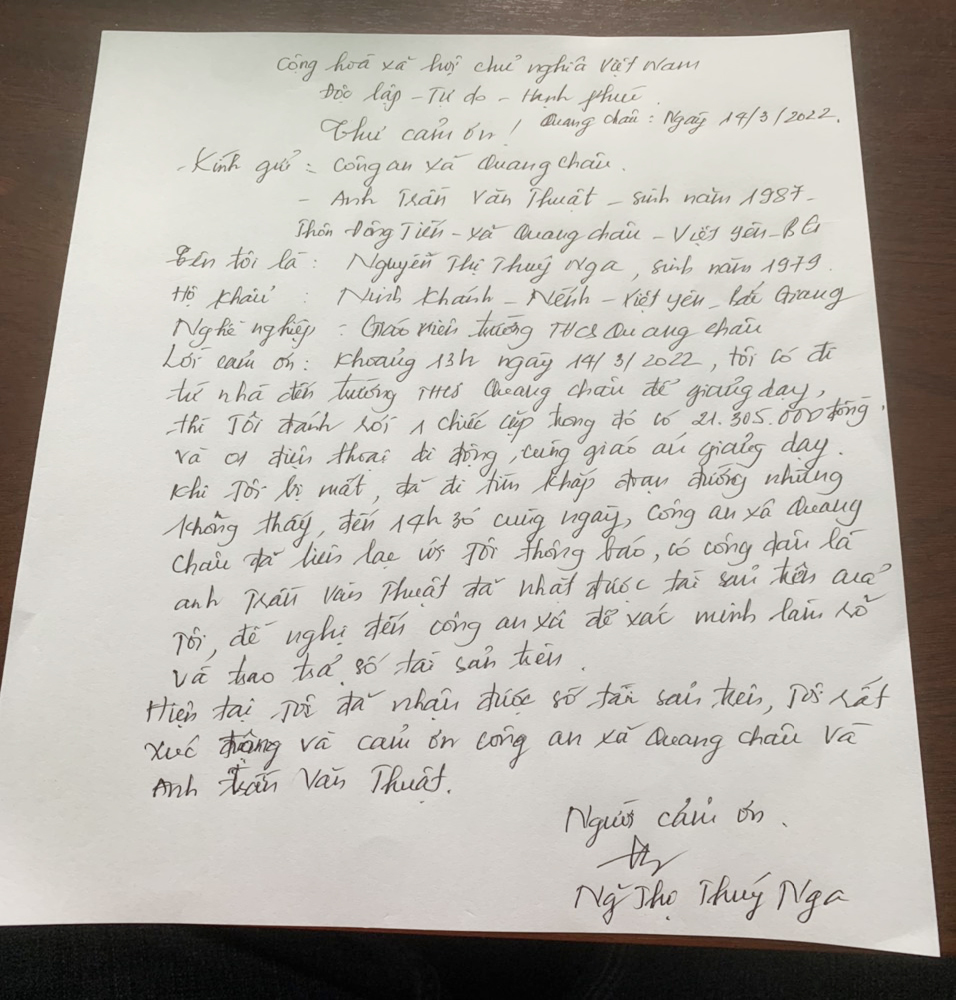 Cộng hoà xã hội chủ nghĩa Việt Nam
Độc lập - Tự do - Hạnh phúc.
Quang châu: Ngày 14/3/2022.
Thư cảm ơn!
- Kính gửi: Công an xã Quang châu.
- Anh Trần Văn Thuật - sinh năm 1987-
Thôn Đông Tiến - xã Quang châu - Việt yên - BG
Tên tôi là: Nguyễn Thị Thuý Nga, sinh năm 1979.
Hộ khẩu: Ninh Khánh - Nếnh - Việt yên - Bắc Giang
Nghề nghiệp: Giáo viên trường THCS Quang châu
Lời cảm ơn: Khoảng 13h ngày 14/3/2022, tôi có đi
từ nhà đến trường THCS Quang châu để giảng dạy,
thì Tôi đánh rơi 1 chiếc cặp trong đó có 21.305.000 đồng
và 01 điện thoại di động, cùng giáo án giảng dạy.
Khi Tôi bị mất, đã đi tìm khắp đoạn đường nhưng
không thấy, đến 14h30 cùng ngày, công an xã Quang
châu đã liên lạc với Tôi thông báo, có công dân là
anh Trần Văn Thuật đã nhặt được tài sản trên của
Tôi, đề nghị đến công an xã để xác minh làm rõ
và trao trả số tài sản trên.
Hiện tại Tôi đã nhận được số tài sản trên, Tôi rất
xúc động và cảm ơn công an xã Quang châu và
Anh Trần Văn Thuật.
Người cảm ơn.
Ng Thị Thuý Nga